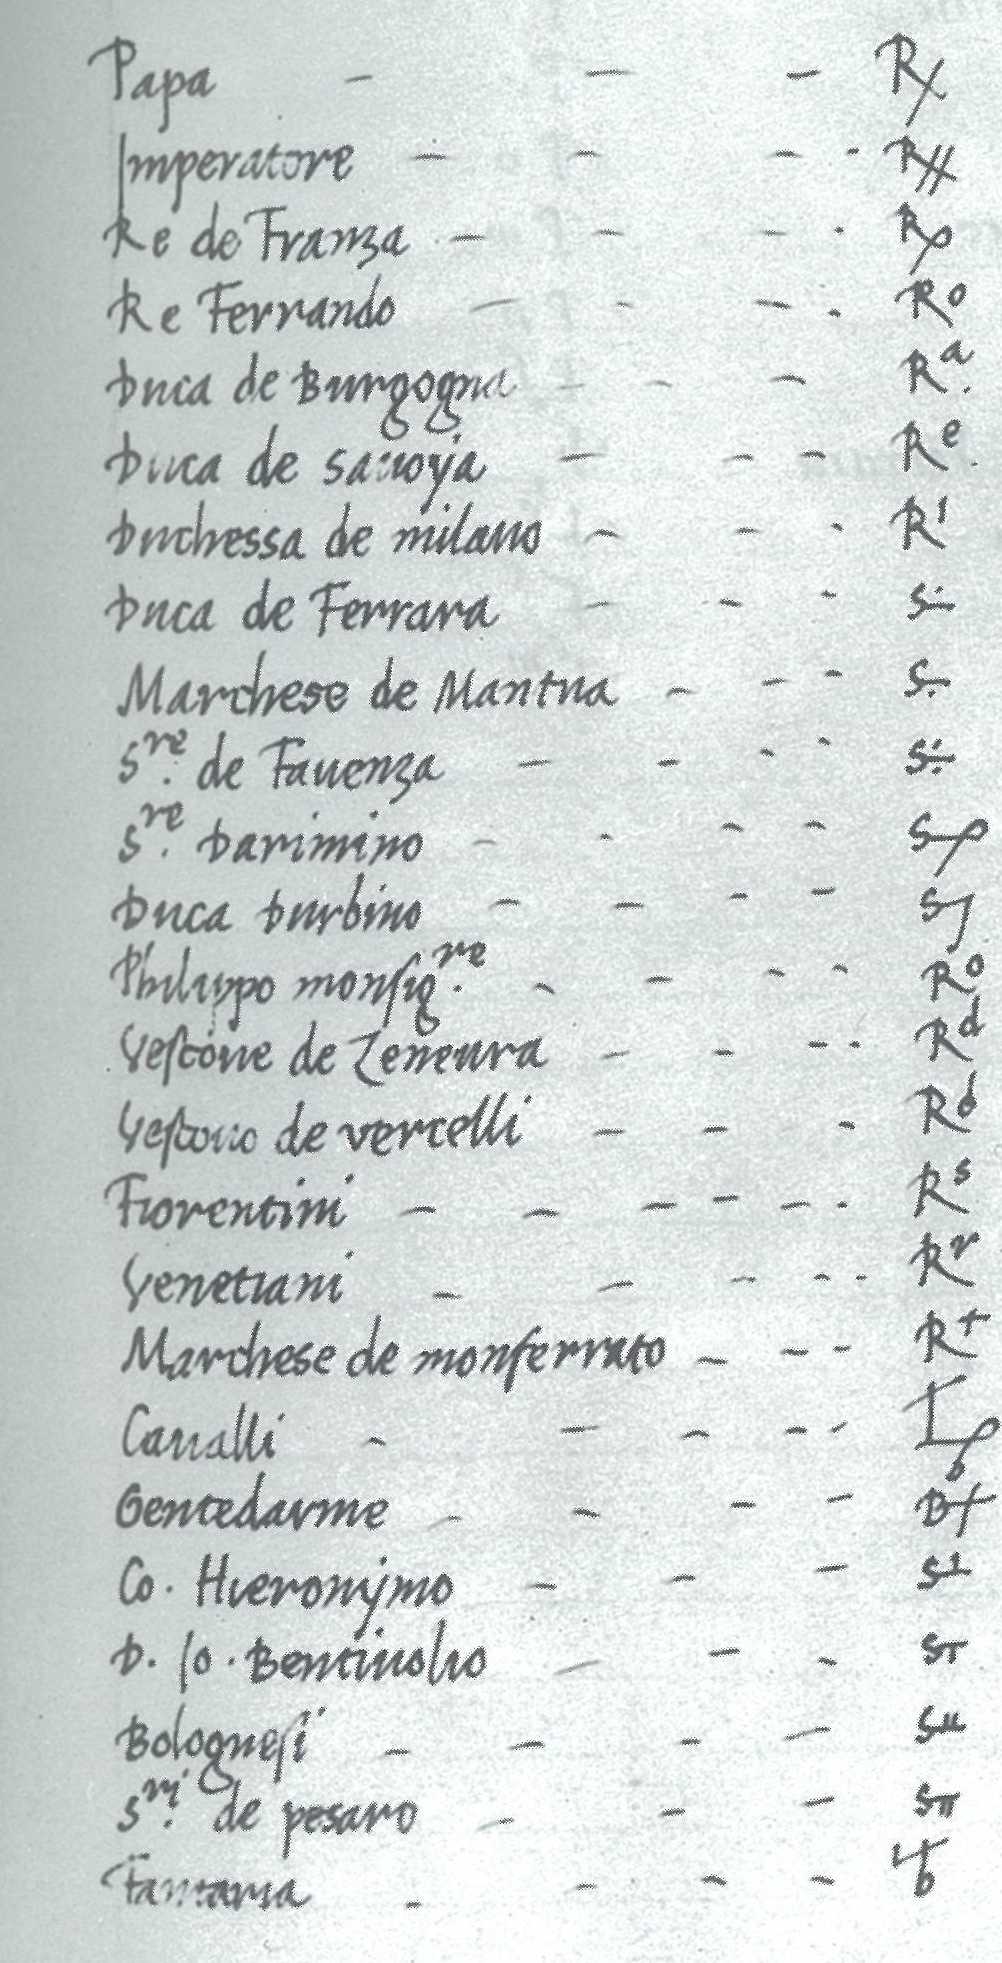 Papa - - - R
Imperatore - - - R
Re de Franza - - - R
Re Ferrando - - - Ro
Duca de Burgogna - - - Ra.
Duca de Sauoya - - - Re.
Duchessa de milano - - - R1
Duca de Ferrara - - - S
Marchese de Mantua - - - S
Sre. de Fauenza - - - - S
Sre. Darimino - - - - S
Duca Durbino - - - - S
Philippo monsigre. - - - - Ro
Vescouo de Zeneura - - - - Rd
Vescouo de vercelli - - - Rd
Fiorentini - - - - - - Rs
Venetiani - - - - - Rr
Marchese de monferrato - - - R+
Caualli - - - - -
Gentedarme - - - - B
Co. Hieronymo - - - S
D. Io. Bentiuolio - - - S
Bolognesi - - - - S
Sri. de pesaro - - - S
Fantaria - - - -